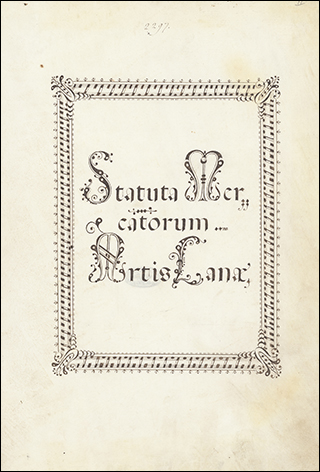 2297.
Statuta Mer„
catorum
Artis Lanæ,